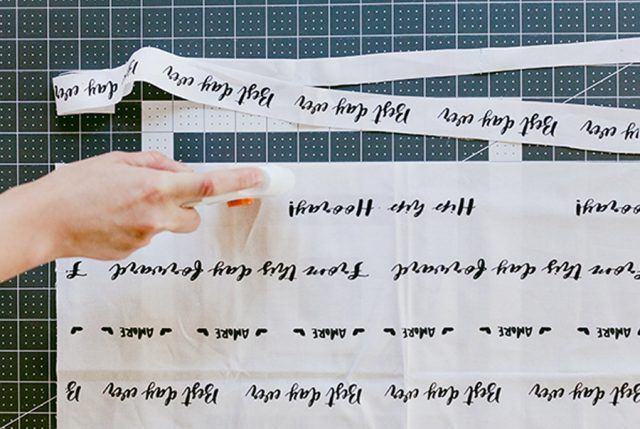 day ever Best day ever Best day ever Best day ever B
AMORE AMORE AMORE AMORE AMORE AMORE
this day forward From this day forward F
Hooray! Hip hip Hooray!
ever Best day ever Best day ever Best day ever
day ever